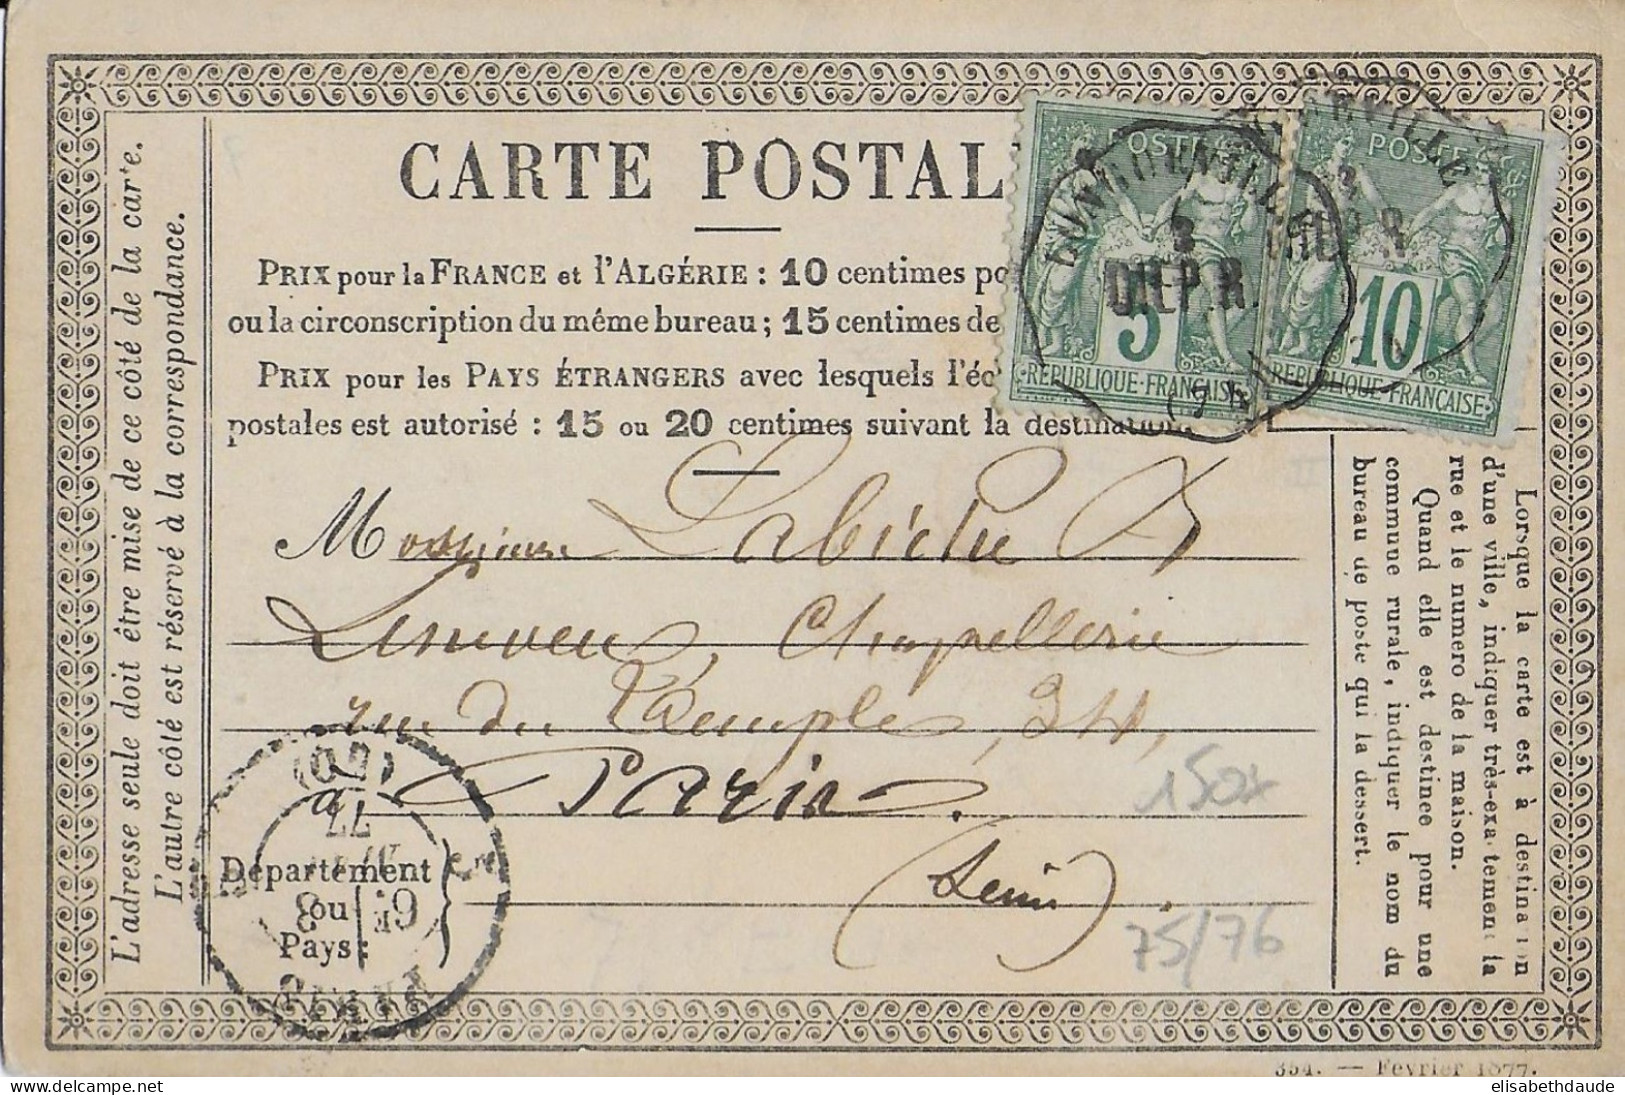 CARTE POSTAL
PRIX pour la FRANCE et l'ALGÉRIE : 10 centimes po
ou la circonscription du même bureau ; 15 centimes de
PRIX pour les PAYS ÉTRANGERS avec lesquels l'éc
postales est autorisé : 15 ou 20 centimes suivant la destination.
L'adresse seule doit être mise de ce côté de la carte.
L'autre côté est réservé à la correspondance.
POSTES
5
REPUBLIQUE-FRANÇAISE
POSTE
10
REPUBLIQUE-FRANÇAISE
LONGUEVILLE
3
D.I.E.P.R.
Monsieur Labiche
Chapellerie
rue du Temple, 34,
à Paris.
(Seine)
Département
ou
Pays:
PARIS
(60)
6E
3
77
150x
75/76
Lorsque la carte est à destination
d'une ville, indiquer très-exactement la
rue et le numéro de la maison.
Quand elle est destinée pour une
commune rurale, indiquer le nom du
bureau de poste qui la dessert.
354. — Février 1877.
elisabethdaude